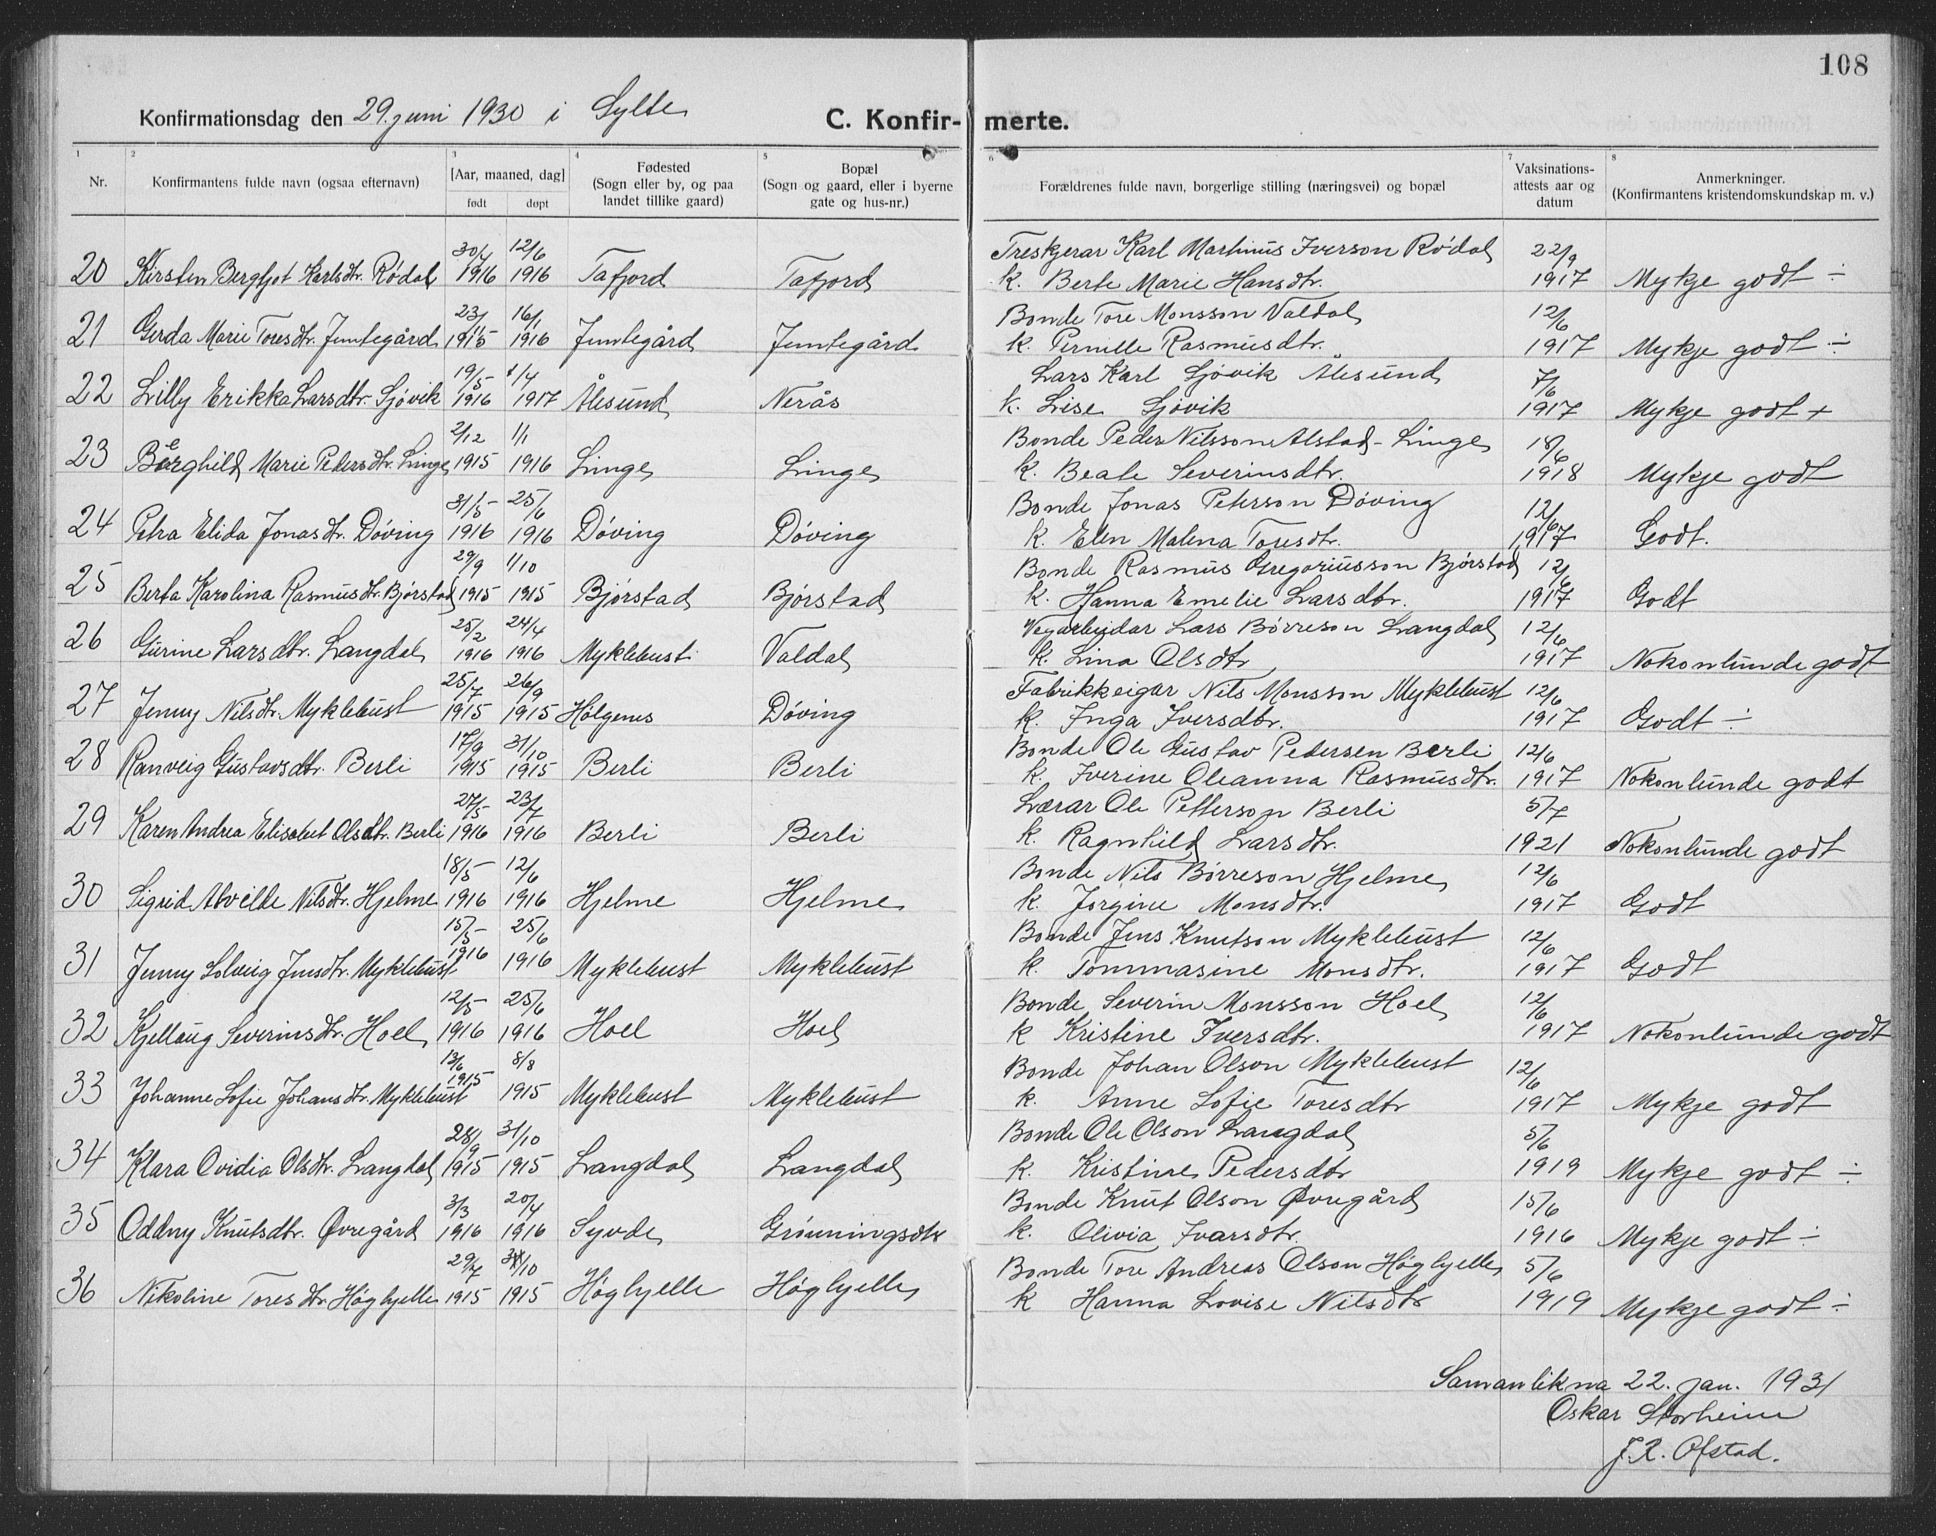 108
Konfirmationsdag den 29. juni 1930 i Sylte C. Konfirmerte.
1 2 3 4 5 6 7 8
Nr. Konfirmantens fulde navn (ogsaa efternavn) [Aar, maaned, dag] født døpt Fødested (Sogn eller by, og paa landet tillike gaard) Bopæl (Sogn og gaard, eller i byerne gate og hus-nr.) Forældrenes fulde navn, borgerlige stilling (næringsvei) og bopæl Vaksinations-attests aar og datum Anmerkninger. (Konfirmantens kristendomskundskap m. v.)
30/4 12/6 Treskjerar Karl Martinus Iverson Rødal 22/9
20 Kirsten Bergljot Karlsdtr. Rødal 1916 1916 Tafjord Tafjord k. Berte Marie Hansdtr. 1917 Mykje godt ÷
23/11 16/1 Bonde Tore Monsson Valdal 12/6
21 Gerda Marie Toresdtr. Jemtegård 1915 1916 Jemtegård Jemtegård k. Pernille Rasmusdtr. 1917 Mykje godt ÷
19/5 1/4 Lars Karl Sjøvik Ålesund 7/6
22 Lilly Erikka Larsdtr. Sjøvik 1916 1917 Ålesund Nerås k. Lise Sjøvik 1917 Mykje godt +
2/12 1/1 Bonde Peder Nilsson Alstad-Linge 18/6
23 Berghild Marie Pedersdtr. Linge 1915 1916 Linge Linge k. Beate Severinsdtr. 1918 Mykje godt
31/5 25/6 Bonde Jonas Peterson Døving 12/6
24 Petra Elida Jonasdtr. Døving 1916 1916 Døving Døving k. Elen Malena Toresdtr. 1917 Godt.
29/9 1/10 Bonde Rasmus Gregoriusson Bjørstad 12/6
25 Berta Karolina Rasmusdtr. Bjørstad 1915 1915 Bjørstad Bjørstad k. Hanna Emelie Larsdtr. 1917 Godt
25/2 24/4 Vegarbeidar Lars Børreson Langdal 12/6
26 Gurine Larsdtr. Langdal 1916 1916 Myklebust Valdal k. Lina Olsdtr 1917 Nokonlunde godt
25/7 26/9 Fabrikkeigar Nils Monsson Myklebust 12/6
27 Jenny Nilsdtr. Myklebust 1915 1915 Hølgenes Døving k. Inga Iversdtr. 1917 Godt ÷
17/9 31/10 Bonde Ole Gustav Pedersen Berli 12/6
28 Ranveig Gustavsdtr. Berli 1915 1915 Berli Berli k. Iverine Oleanna Rasmusdtr. 1917 Nokonlunde godt
27/5 23/7 Lærar Ole Petterson Berli 5/7
29 Karen Andrea Elisabet Olsdtr. Berli 1916 1916 Berli Berli k. Ragnhild Larsdtr. 1921 Nokonlunde godt
18/5 12/6 Bonde Nils Børreson Hjelme 12/6
30 Sigrid Alvilde Nilsdtr. Hjelme 1916 1916 Hjelme Hjelme k. Jorgine Monsdtr. 1917 Godt
15/5 25/6 Bonde Jens Knutson Myklebust 12/6
31 Jenny Solveig Jensdtr. Myklebust 1916 1916 Myklebust Myklebust k. Tommasine Monsdtr. 1917 Godt
12/5 25/6 Bonde Severin Monsson Hoel 12/6
32 Kjellaug Severinsdtr. Hoel 1916 1916 Hoel Hoel k Kristine Iversdtr. 1917 Nokonlunde godt
13/6 8/8 Bonde Johan Olson Myklebust 12/6
33 Johanne Sofie Johansdtr. Myklebust 1915 1915 Myklebust Myklebust k. Anne Sofie Toresdtr 1917 Mykje godt
28/9 31/10 Bonde Ole Olson Langdal 5/6
34 Klara Ovidia Olsdtr. Langdal 1915 1915 Langdal Langdal k. Kristine Pedersdtr 1919 Mykje godt ÷
3/3 20/4 Bonde Knut Olson Øvregård 15/6
35 Oddny Knutsdtr. Øvregård 1916 1916 Syvde Grønningsæter k. Olivia Ivarsdtr. 1916 Mykje godt ÷
29/7 31/10 Bonde Tore Andreas Olson Høghjelle 5/6
36 Nikoline Toresdtr. Høghjelle 1915 1915 Høghjelle Høghjelle k Hanna Lovise Nilsdtr 1919 Mykje godt ÷
Samanlikna 22. jan. 1931
Oskar Storheim
J. R. Ofstad.